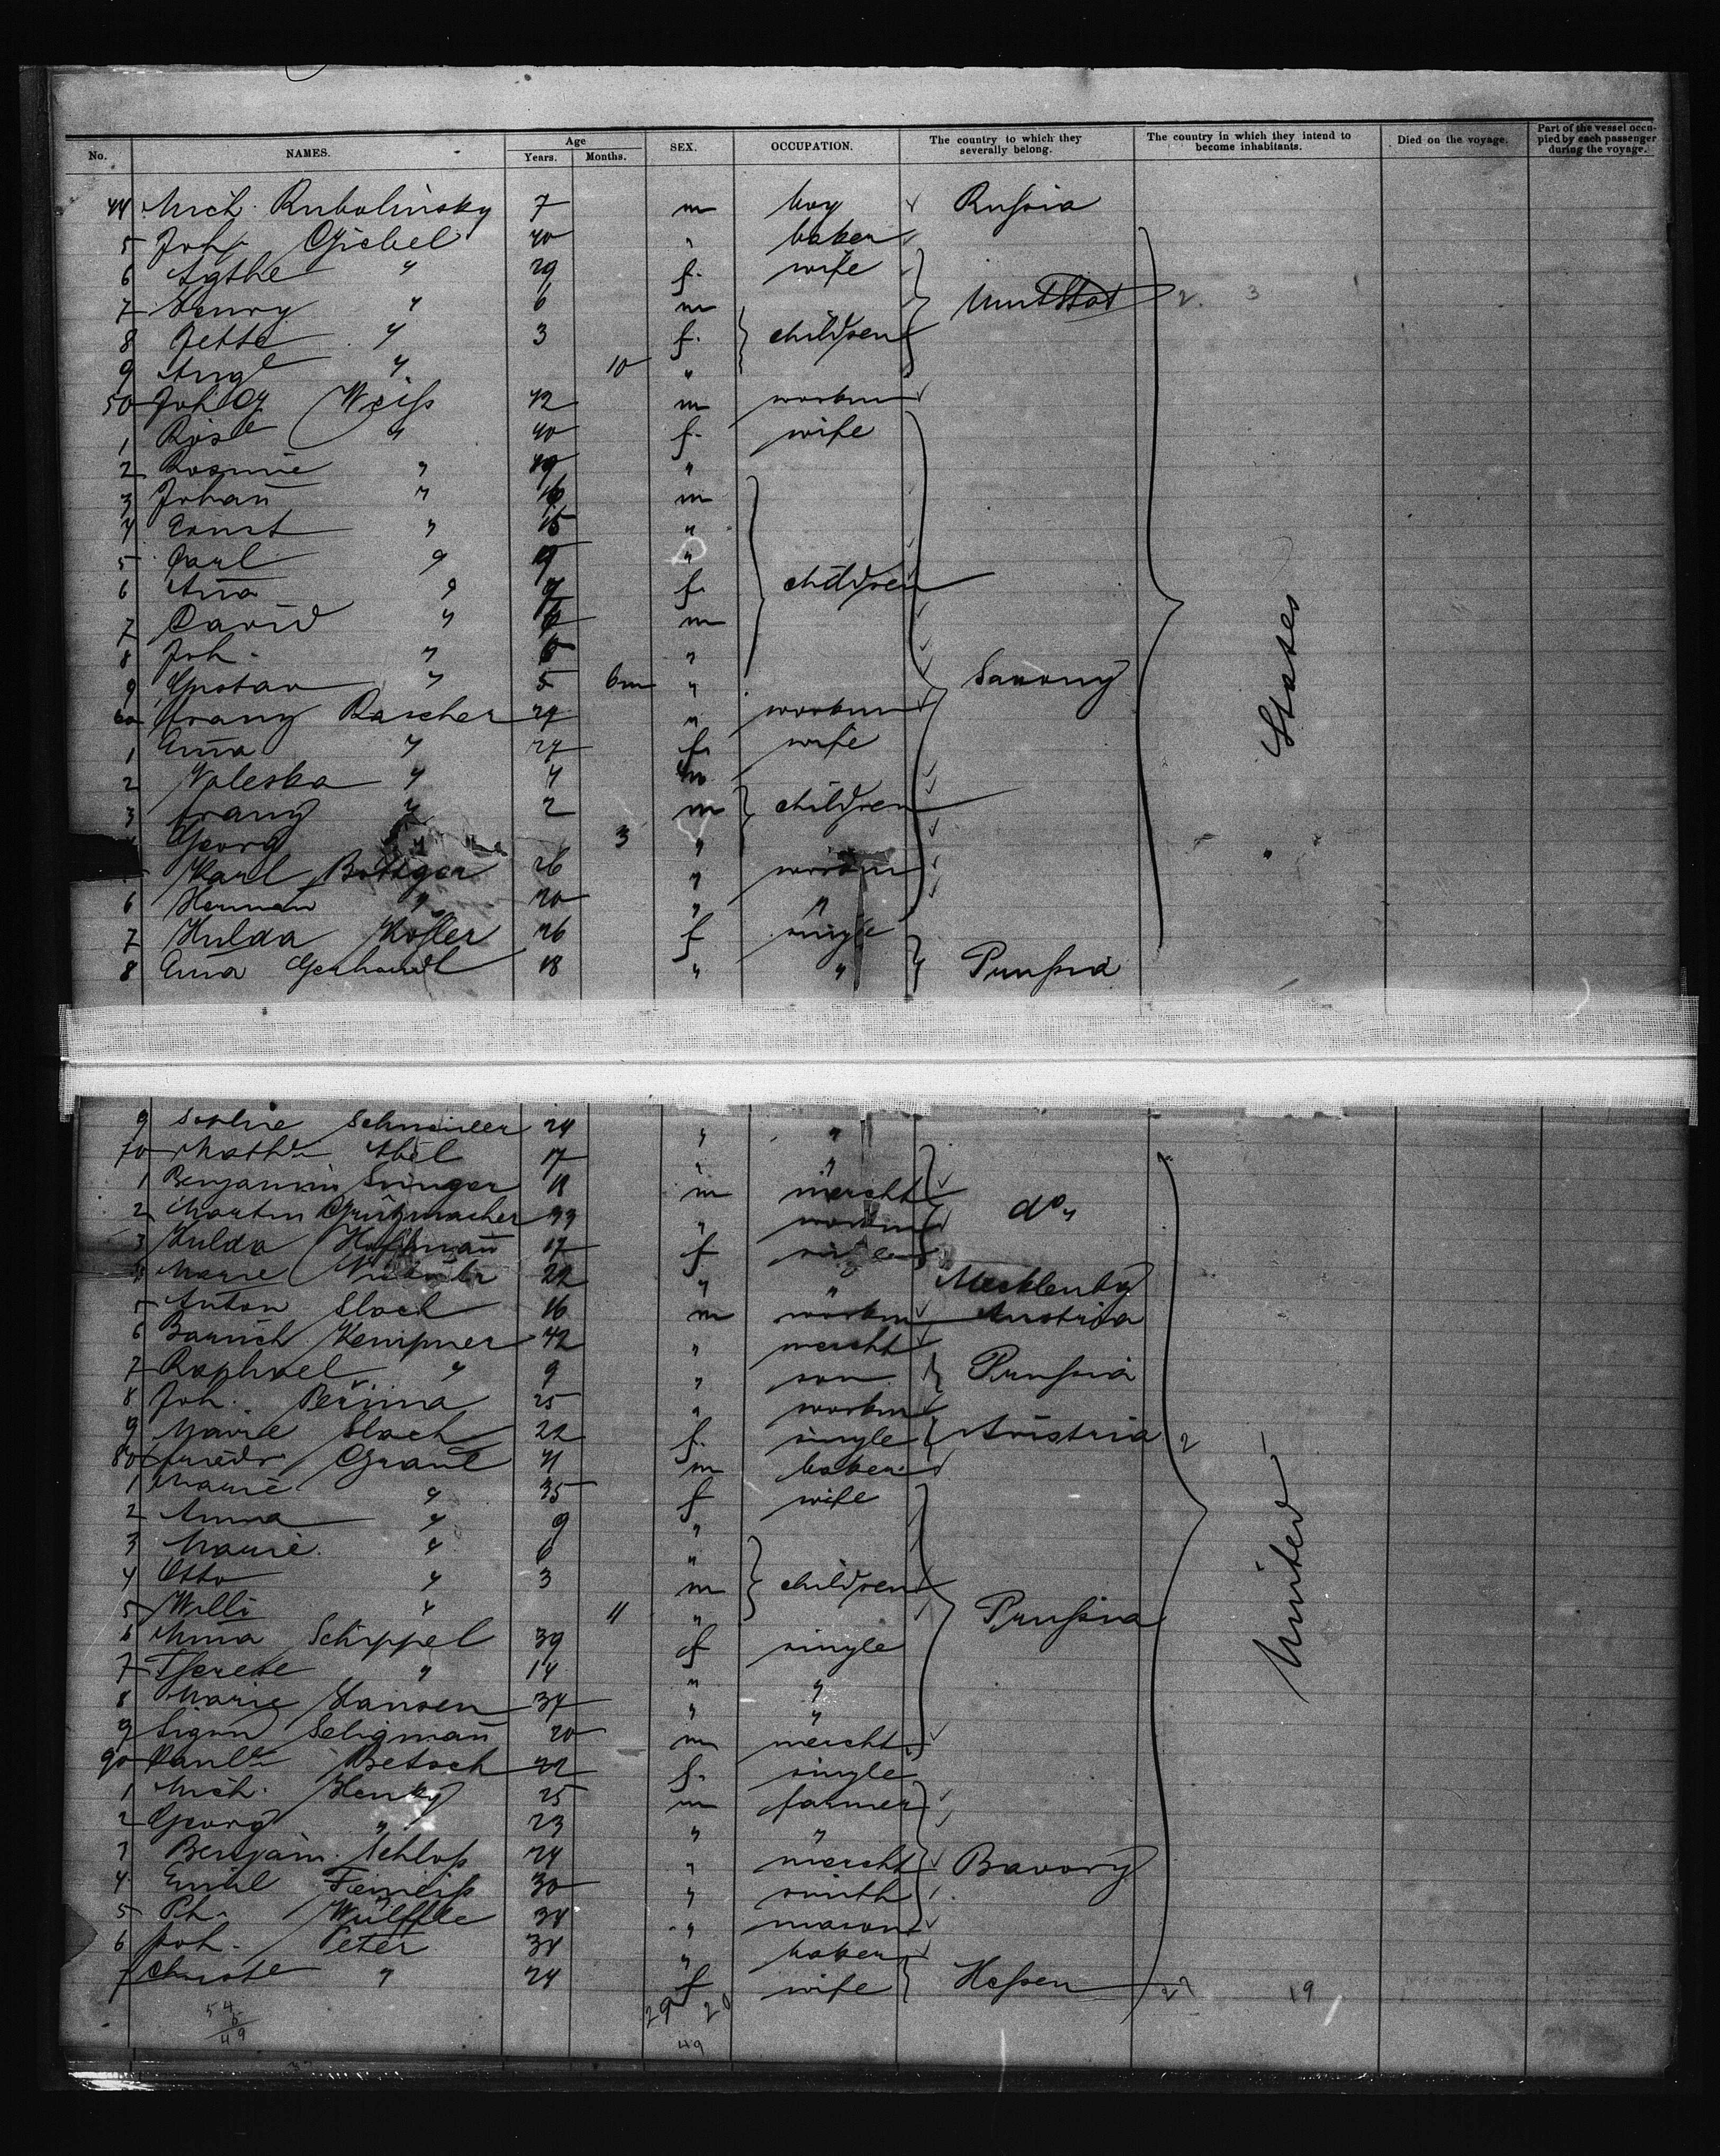 No. NAMES. Age Years. Months. SEX. OCCUPATION. The country to which they severally belong. The country in which they intend to become inhabitants. Died on the voyage. Part of the vessel occupied by each passenger during the voyage.
44 Mich. Rubolinsky 7 m boy Russia
5 Joh. Giebel 40 " baker
6 Agthe " 29 f. wife
7 Henry " 6 m Unit Stat 2. 3
8 Jette " 3 f. children
9 Aug " 10 "
50 Joh G Weiss 42 m workm
1 Rosl " 40 f. wife
2 Rosine " "
3 Johañ " m
4 Ernst " 15 "
5 Carl " 9 "
6 Aña " f. children
7 David " m
8 Joh. " "
9 Gustav " 5 6m " Saxony
60 Franz Rascher 29 " workm
1 Aña " 27 f. wife
2 Valeska " 4
3 Franz " 2 m children
Georg " 3 "
Karl Bottger 26 " workm
6 Herman " 20 " "
7 Hulda Kofler 26 f single
8 Aña Gerhardt 18 " " Prussia
States
9 Sophie Schneider 24 " "
70 Math Abel 17 " "
1 Benjamin Singer 18 m mercht
2 Martin Grützmacher 33 " workm do "
3 Hulda Hoffmañ 17 f single
4 Marie 22 " " Mecklenbg
5 Anton Slach 16 m workm Austria
6 Baruch Kempner 42 " mercht
7 Raphael " 9 " son Prussia
8 Joh. Perina 25 " workm
9 Marie Slach 22 f. single Austria 2 1
80 Friedr Graul 41 m baker
1 Marie " 35 f wife
2 Anna " 9 "
3 Marie " 6 "
4 Otto " 3 m children
5 Willi " 11 " Prussia
6 Miña Schippel 39 f single
7 Therese " 14 " "
8 Marie Hansen 34 " "
9 Sigm Seligmañ 20 m mercht
90 Paul Betsch 22 f. single
1 Mich. Henky 25 m farmer
2 Georg " 23 " "
3 Benjam. Schloss 24 " mercht Bavory
4 Emil 30 " smith
5 Ph. Wülffle 34 " mason
6 Joh. Peter 34 " baker
7 Christe " 24 f wife Hessen 2 19
United
54
49
29 20
49